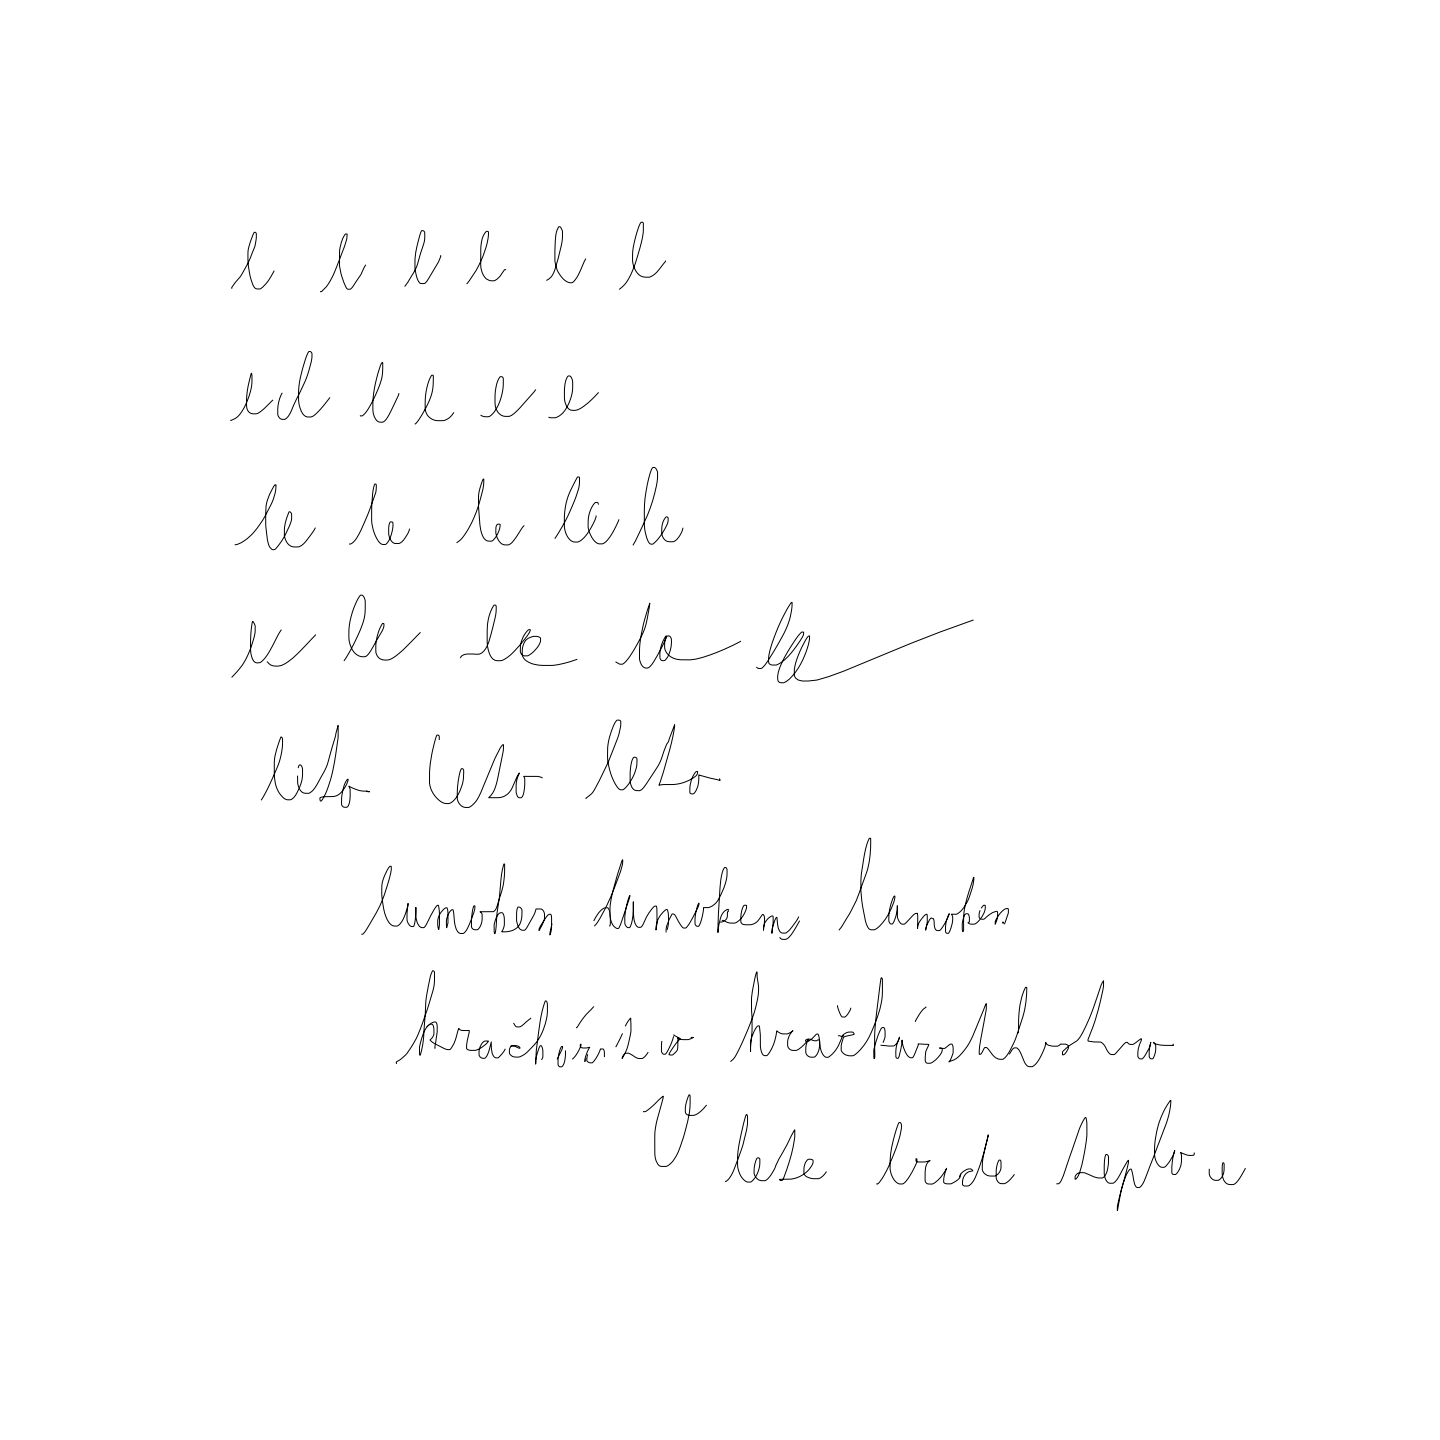 l l l l l l
e l l e e e
le le le le le
le le le le le
leto leto leto
lamoken lamokem lamoken
hračkárstvo hračkárstvo
V lete bude teplo